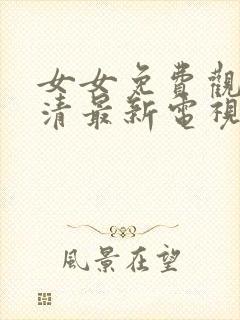 女女免費觀
清最新電視
風景在望